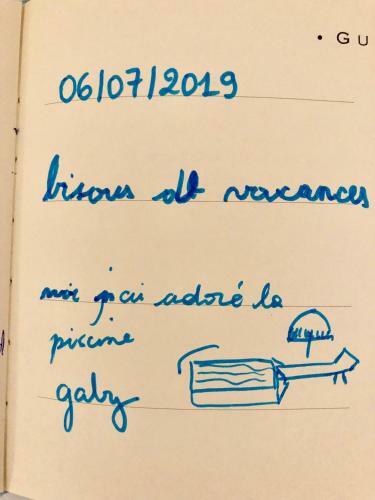 • GU
06/07/2019
bisous de vacances
moi j'ai adoré la
piscine
gaby